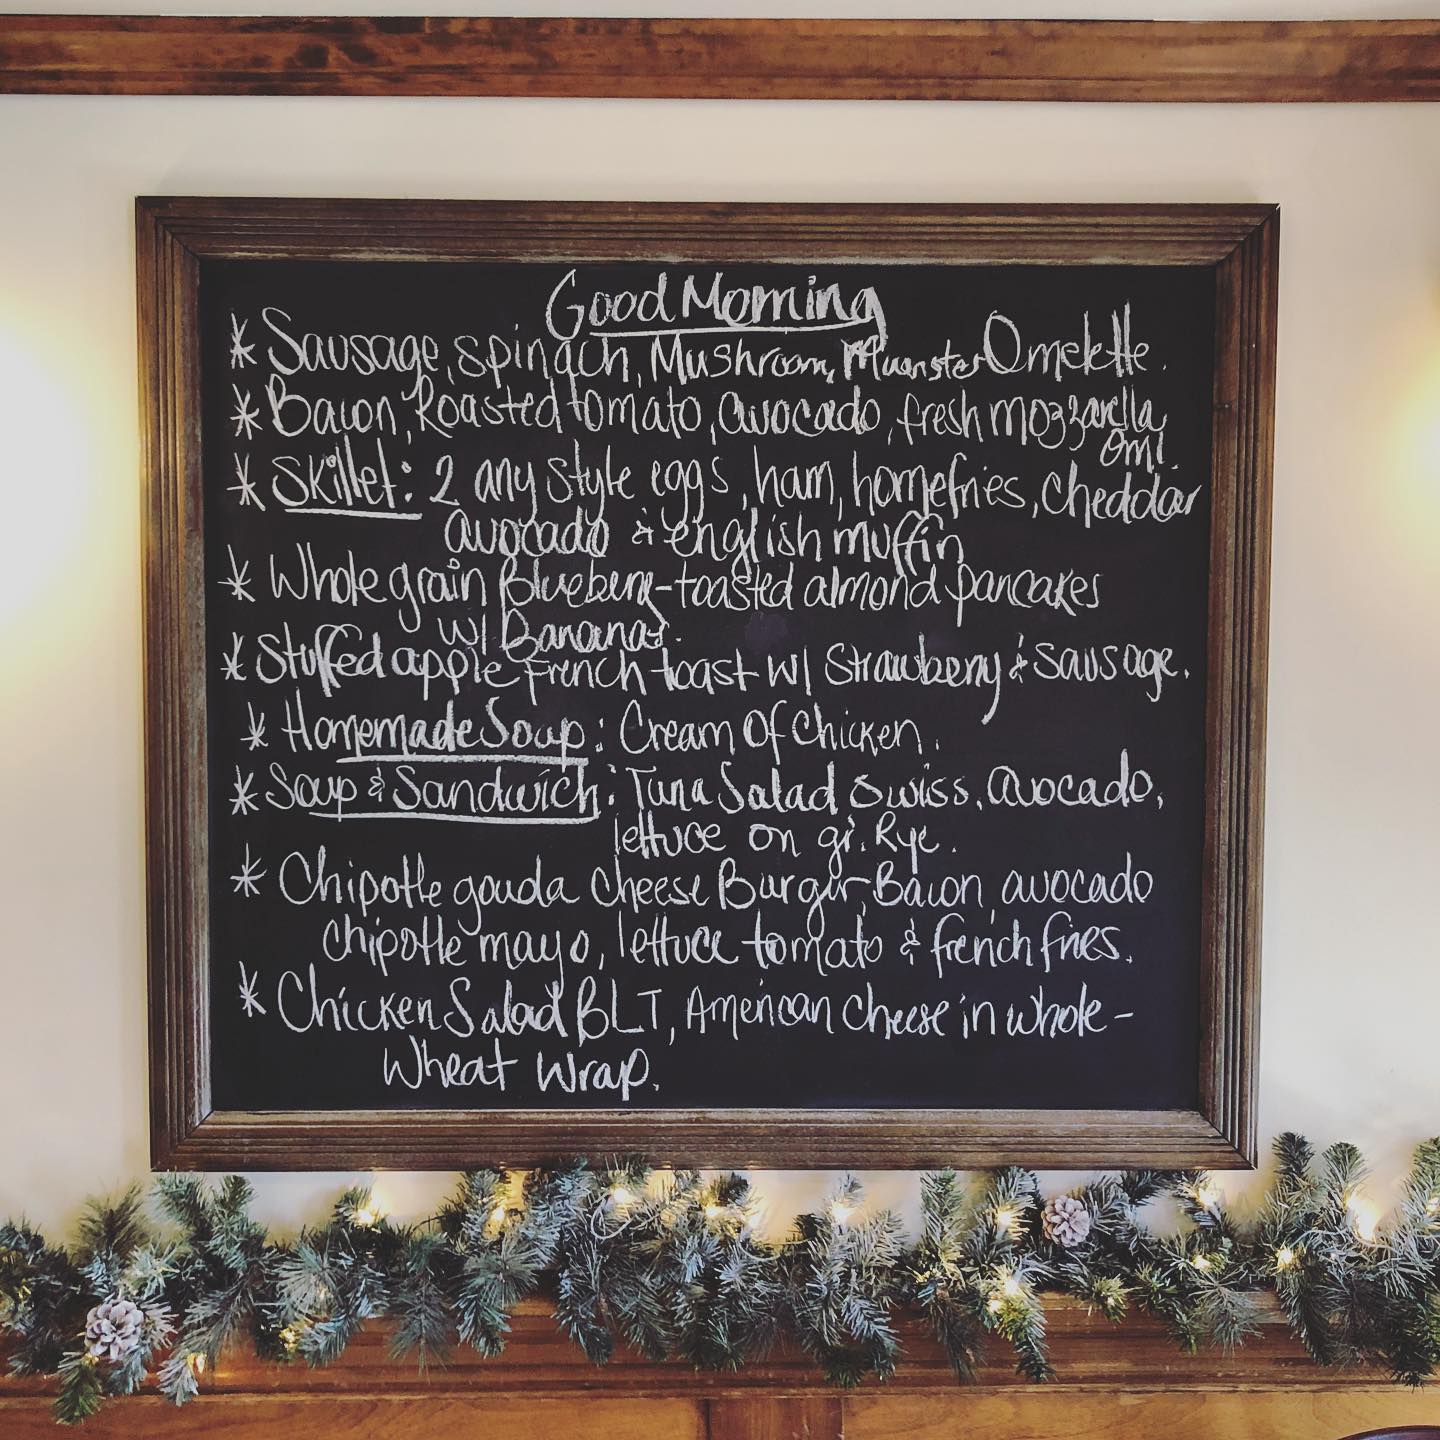 Good Morning
* Sausage, spinach, Mushroom, Muenster Omelette.
* Bacon, Roasted tomato, avocado, fresh mozzarella
oml.
* Skillet: 2 any style eggs, ham, homefries, cheddar
avocado & english muffin
* Whole grain Blueberry-toasted almond pancakes
w/ Bananas.
* Stuffed apple french toast w/ Strawberry & sausage.
* Homemade Soup: Cream Of Chicken.
* Soup & Sandwich: Tuna Salad swiss, avocado,
lettuce on gr. Rye.
* Chipotle gouda cheese Burger, Bacon, avocado
chipotle mayo, lettuce tomato & french fries.
* Chicken Salad BLT, American cheese in whole-
Wheat Wrap.